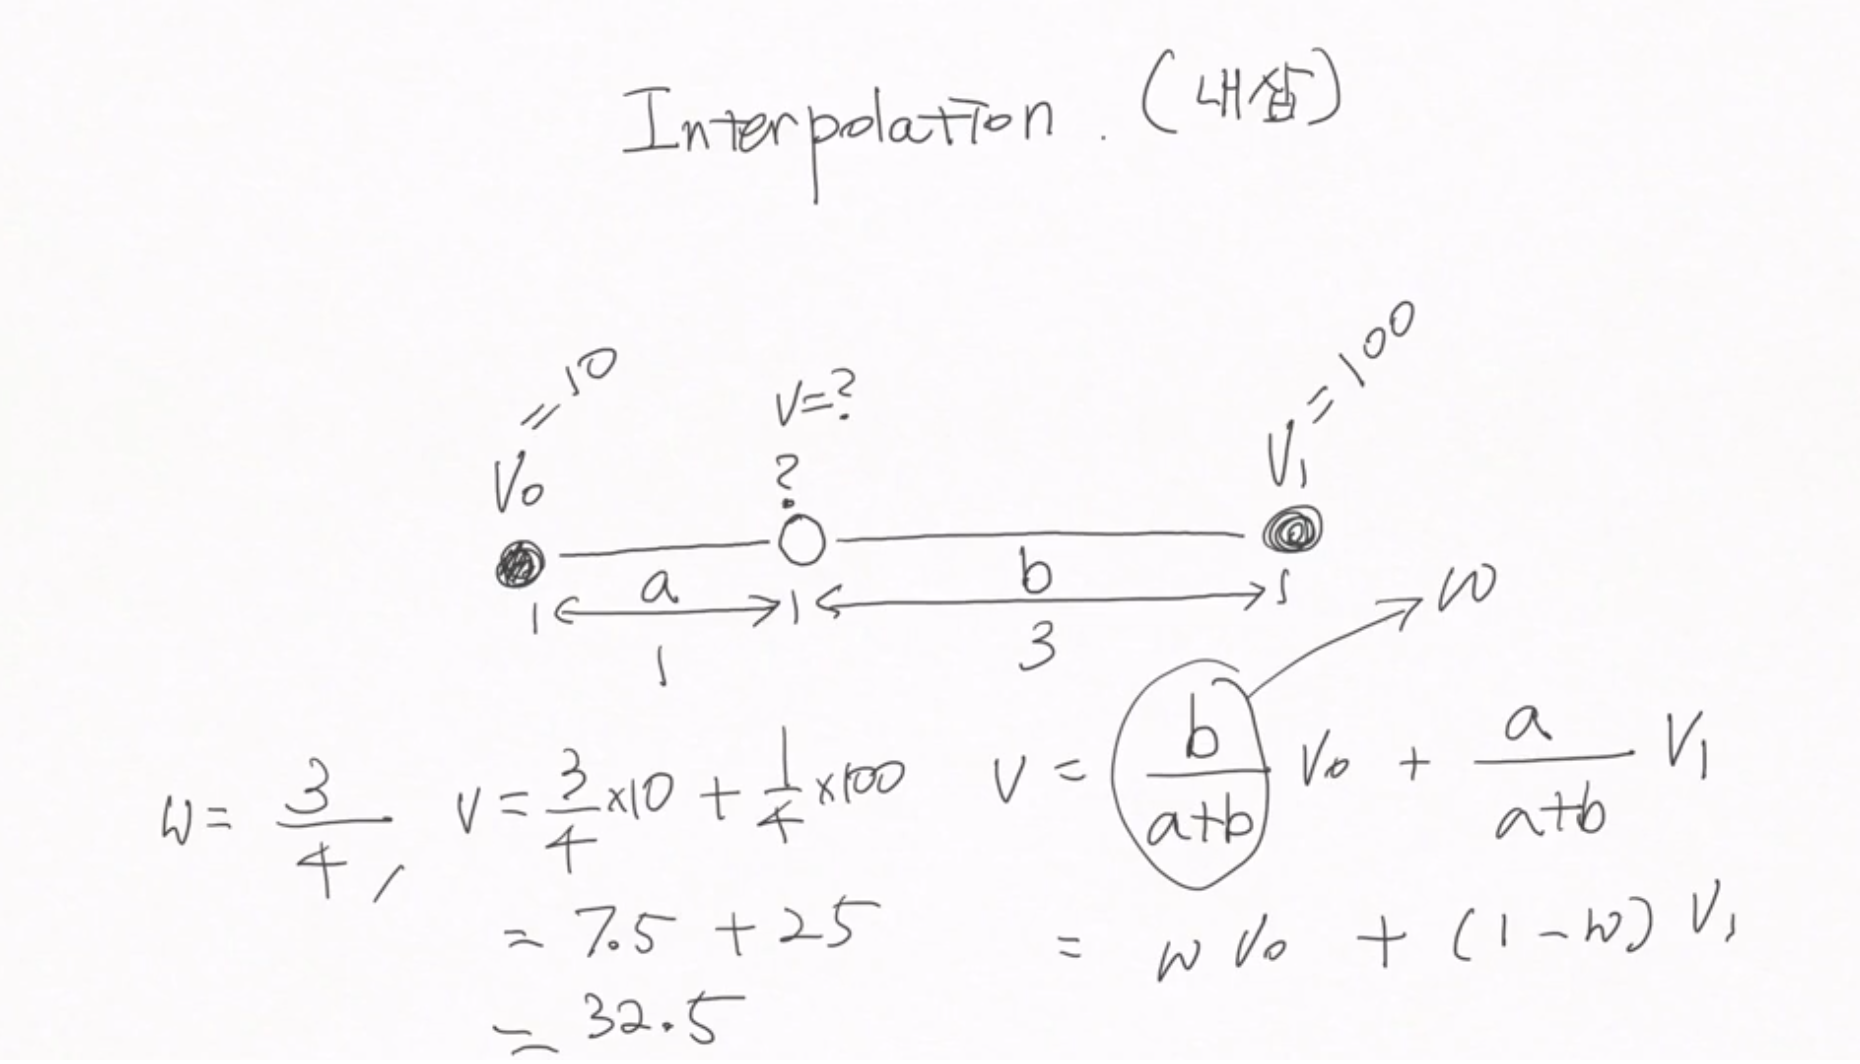 Interpolation. (내삽)
V₀ = 10
V=?
?
V₁ = 100
a
b
1
3
w
w = 3/4, V = 3/4 ×10 + 1/4 ×100
= 7.5 + 25
= 32.5
V = b/(a+b) V₀ + a/(a+b) V₁
= w V₀ + (1-w) V₁